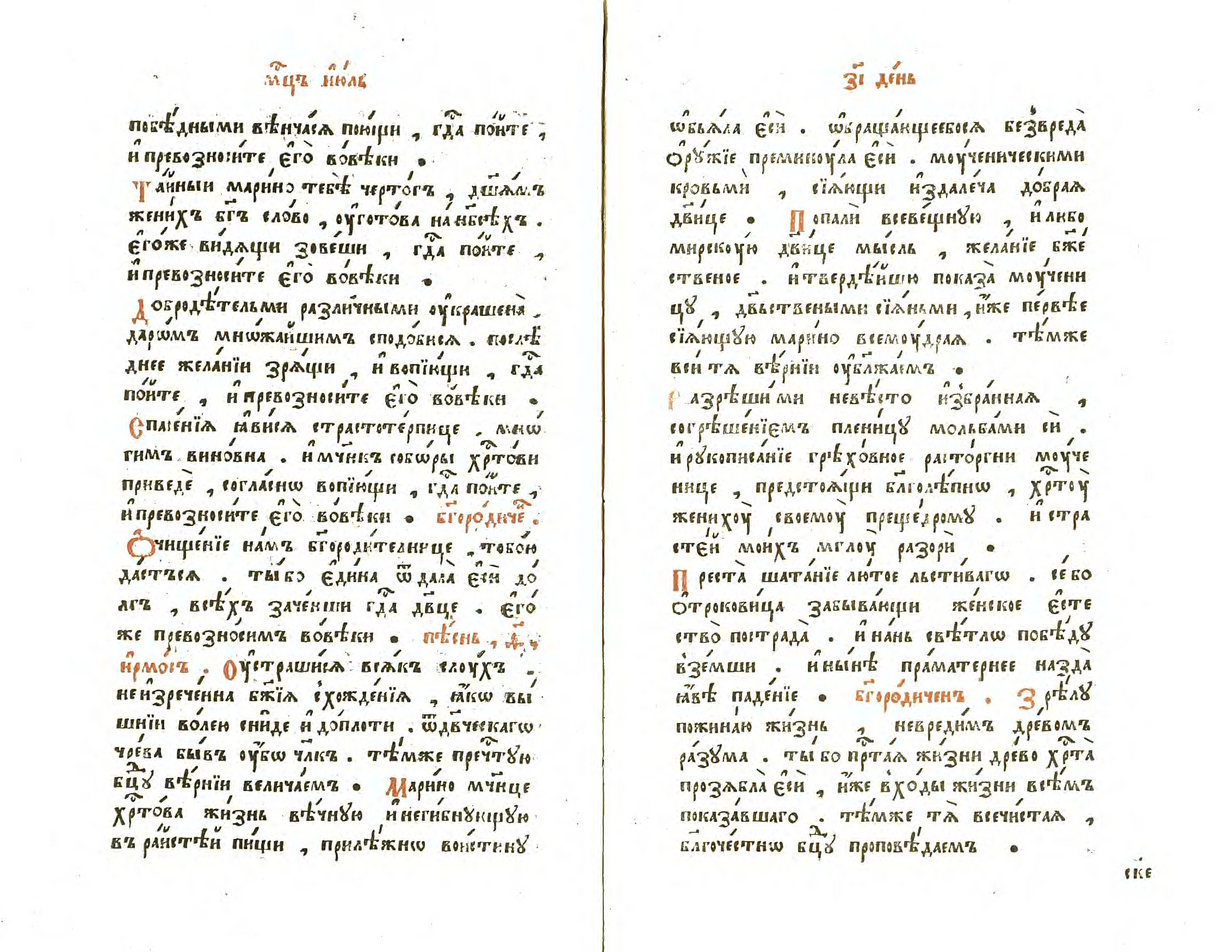 мⷭ҇цъ і҆ю́ль
побѣ́дными вѣнча́сѧ пою́щи , гдⷭ҇а по́йте ,
и҆ превозноси́те є҆го̀ во́вѣки .
Та́йныи марі́но тебѣ̀ черто́гъ , дш҃а́мъ
жени́хъ бг҃ъ сло́во , оу҆гото́ва на нбⷭ҇ѣ́хъ .
є҆го́же ви́дѧщи зове́ши , гдⷭ҇а по́йте ,
и҆ превозноси́те є҆го̀ во́вѣки .
Добродѣ́тельми разли́чными оу҆кра́шена̀ ,
даро́мъ мно́жайшимъ сподо́бисѧ . послѣ̀
днее жела́нїи зрѧ́щи , и҆ вопїю́щи , гдⷭ҇а
по́йте , и҆ превозноси́те є҆го̀ во́вѣки .
Спасе́нїѧ ꙗ҆ви́сѧ страстоте́рпице , мнѡ́
гимъ вино́вна . и҆ мч҃никъ собо́ры хрⷭ҇то́ви
приведѐ , согла́снѡ вопїю́щи , гдⷭ҇а по́йте ,
и҆ превозноси́те є҆го̀ во́вѣки . бг҃оро́диче .
Ѻ҆чище́нїе на́мъ бг҃ороди́телнице , тобо́ю
да́стъсѧ . ты́ бо є҆ди́на ѿдала̀ є҆сѝ до́
лгъ , всѣ́хъ заче́нши гдⷭ҇а дв҃це . є҆го́
же превозно́симъ во́вѣки . пѣ́снь , ѳ҃ ,
і҆рмо́съ . Оу҆страши́сѧ всѧ́къ слоу́хъ ,
неи҆зрече́нна бж҃їѧ схожде́нїѧ , ꙗ҆́кѡ вы́
шнїи во́лею сни́де и҆ до пло́ти . ѿ дв҃ческагѡ
чре́ва бы́въ оу҆́бѡ чл҃къ . тѣ́мже пречⷭ҇тую
бц҃у вѣ́рнїи велича́емъ . Мари́но мч҃нце
хрⷭ҇то́ва жи́знь вѣ́чную и҆ неги́бнущую
въ ра́йстѣй пи́щи , прилѣ́жнѡ вои́стину
з҃і де́нь
ѡ҆бъѧ́ла є҆сѝ . ѡ҆браща́ющеебосѧ безвреда̀
ѻ҆рꙋ́жїе премину́ла є҆сѝ . моу́ченическими
кровьмѝ , сїѧ́ющи и҆здале́ча до́браѧ
дв҃ице . Попалѝ всеве́щную , и҆ либо
мирскоую дв҃ице мы́сль , жела́нїе бжⷭ҇е
ственое . и҆ тверде́йшю показа̀ моу́чени
цу , дв҃ьствеными сїѧ́ньми , и҆́же пе́рвѣе
сїѧ́ющую мари́но всемоу́драѧ . тѣ́мже
вси́ тѧ вѣ́рнїи оу҆блжа́емъ .
Разрѣши́ ми невѣ́сто и҆збра́ннаѧ ,
согрѣше́нїемъ пле́ницу мольба́ми сѝ .
и҆ рукописа́нїе грѣхо́вное расто́ргни моу́че
нице , предстоѧ́щи бл҃голѣ́пнѡ , хрⷭ҇тоу̀
женихоу̀ своемоу̀ преще́дрому . и҆ стра
сте́й мои́хъ мглоу̀ разорѝ .
Преста̀ шата́нїе лю́тое льсти́вагѡ . се́ бо
ѻ҆трокови́ца забыва́ющи же́нское є҆сте
ство̀ пострада̀ . и҆ на́нь свѣ́тлѡ побѣ́ду
взе́мши . и҆ ны́нѣ прама́тернее назда̀
ꙗ҆́вѣ паде́нїе . бг҃оро́диченъ . Зрѣ́лу
пожина́ю жи́знь , невреди́мъ дре́вомъ
ра́зума . ты́ бо прⷭ҇та́ѧ жи́зни дре́во хрⷭ҇та̀
прозѧбла̀ є҆сѝ , и҆́же вхо́ды жи́зни всѣ́мъ
показа́вшаго . тѣ́мже тѧ̀ всечи́стаѧ ,
бл҃гоче́стнѡ бц҃у проповѣ́даемъ .
ск҃е